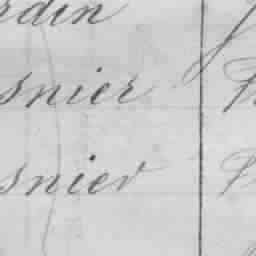 rdin
snier
snier